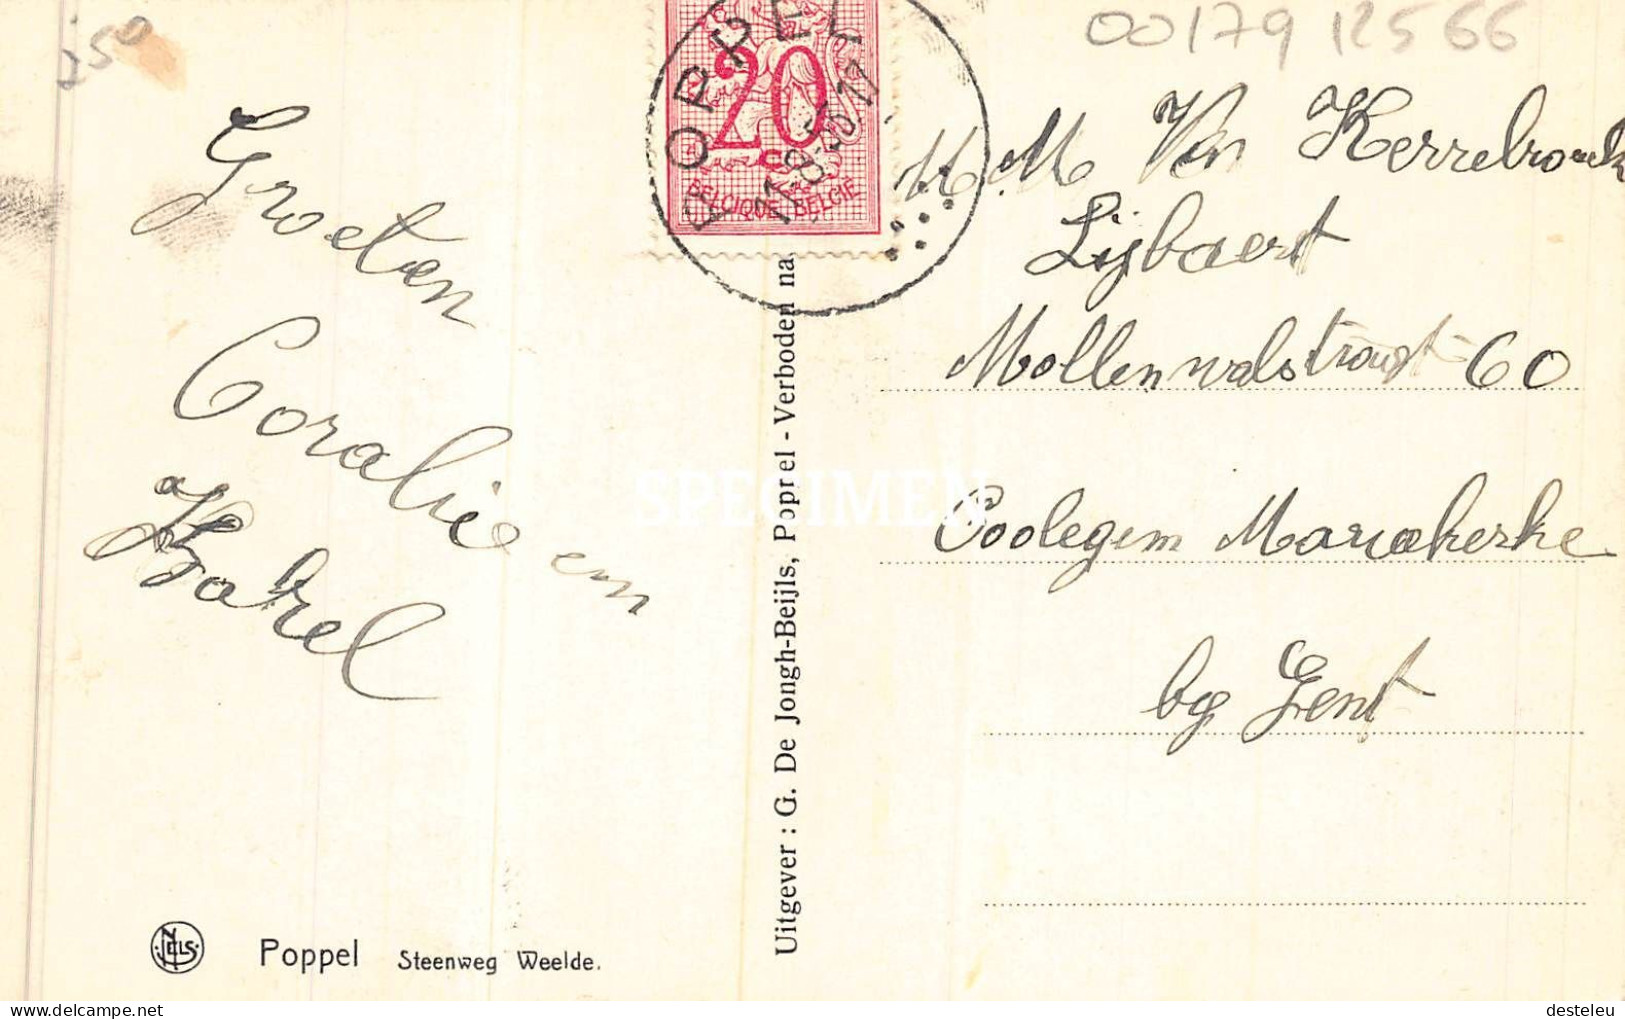 25⁰
00179 12566
POPPEL
20
17-8-55 17
BELGIQUE BELGIË
Groeten
Coralie en
Karel
M M Van Kerrebrouck
Lijbaert
Mollenwalstraat 60
Coolegem Mariakerke
bij Gent
SPECIMEN
Uitgever : G. De Jongh-Beijls, Poppel - Verboden na
NELS
Poppel Steenweg Weelde.
delcampe.net
desteleu